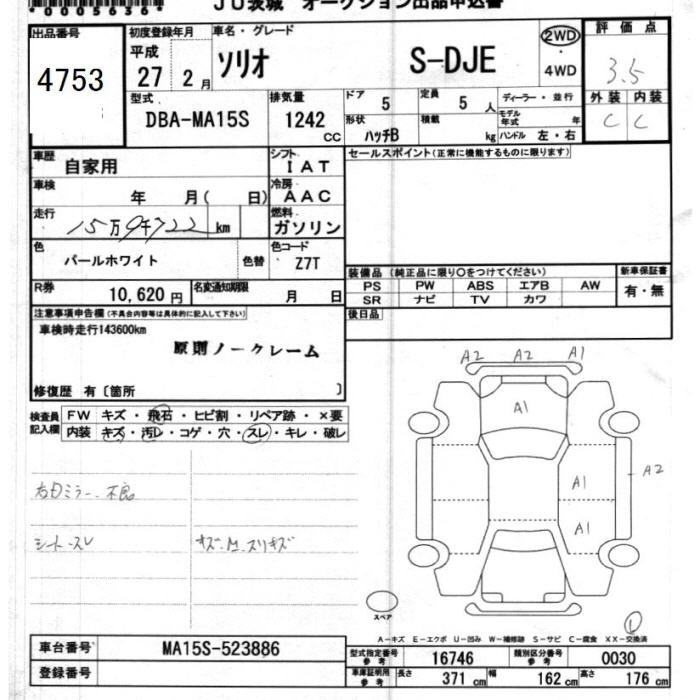 *00056366*
JU茨城 オークション出品申込書
出品番号
4753
初度登録年月
平成
27 2月
車名・グレード
ソリオ S-DJE
2WD
・
4WD
評価点
3.5
外装 内装
C C
型式
DBA-MA15S
排気量
1242
CC
ドア 5
定員 5人
ディーラー・並行
形状 ハッチB
積載 kg
モデル年式 年
ハンドル 左・右
車歴
自家用
シフト
IAT
セールスポイント(正常に機能するものに限ります)
車検
年 月( 日)
冷房
AAC
走行
15万9千722 km
燃料
ガソリン
色
パールホワイト
色替
色コード
Z7T
装備品 (純正品に限り○をつけてください)
新車保証書
PS PW ABS エアB AW
有・無
SR ナビ TV カワ
R券
10,620円
名変通知期限
月 日
後日品
注意事項申告欄(不具合内容等は具体的に記入して下さい)
車検時走行143600km
原則ノークレーム
修復歴 有〔箇所 〕
検査員
記入欄
FW キズ・飛石・ヒビ割・リペア跡・×要
内装 キズ・汚レ・コゲ・穴・スレ・キレ・破レ
右Dミラー、不良
シートスレ
キズ.M.スリキズ
A2 A2 A1
A1
A1
A2
A1
スペア
1
A-キズ E-エクボ U-凹み W-補修跡 S-サビ C-腐食 XX-交換済
車台番号
MA15S-523886
登録番号
型式指定番号
参考
16746
類別区分番号
参考
0030
車庫証明用
参考
長さ 371 cm
幅 162 cm
高さ 176 cm